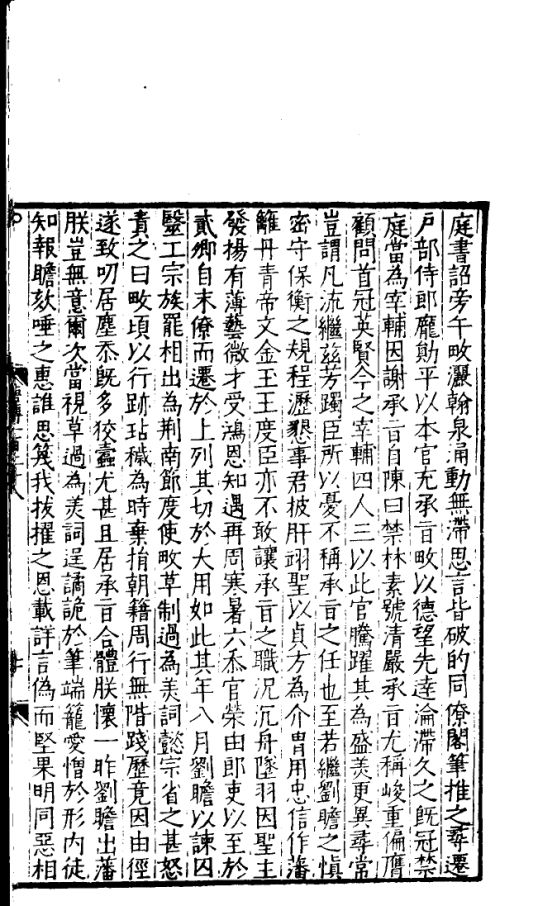 庭書詔旁午畋灑翰泉湧動無滯思言皆破的同僚閣筆推之尋遷
戶部侍郎龐勛平以本官充承㫖畋以德望先達淪滯久之旣冠禁
庭當為宰輔因謝承㫖自陳曰禁林素號清嚴承㫖尤稱峻重偏膺
顧問首冠英賢今之宰輔四人三以此官騰躍其為盛羙更異尋常
豈謂凡流繼茲芳躅臣所以憂不稱承㫖之任也至若繼劉瞻之慎
密守保衡之規程瀝懇事君披肝翊聖以貞方為介冑用忠信作藩
籬丹青帝文金王王度臣亦不敢讓承㫖之職況沉舟墜羽因聖主
發揚有薄藝微才受鴻恩知遇再周寒暑六忝官榮由郎吏以至於
貳卿自末僚而遷於上列其切於大用如此其年八月劉瞻以諫囚
毉工宗族罷相出為荆南節度使畋草制過為羙詞懿宗省之甚怒
責之曰畋頃以行跡玷穢為時棄捐朝籍周行無階踐歷竟因由徑
遂致叨居塵忝旣多狡蠹尤甚且居承㫖合體朕懷一昨劉瞻出藩
朕豈無意爾次當視草過為羙詞逞譎詭於筆端籠愛憎於形内徒
知報瞻欬唾之惠誰思箋我拔擢之恩載詳言偽而堅果明同惡相